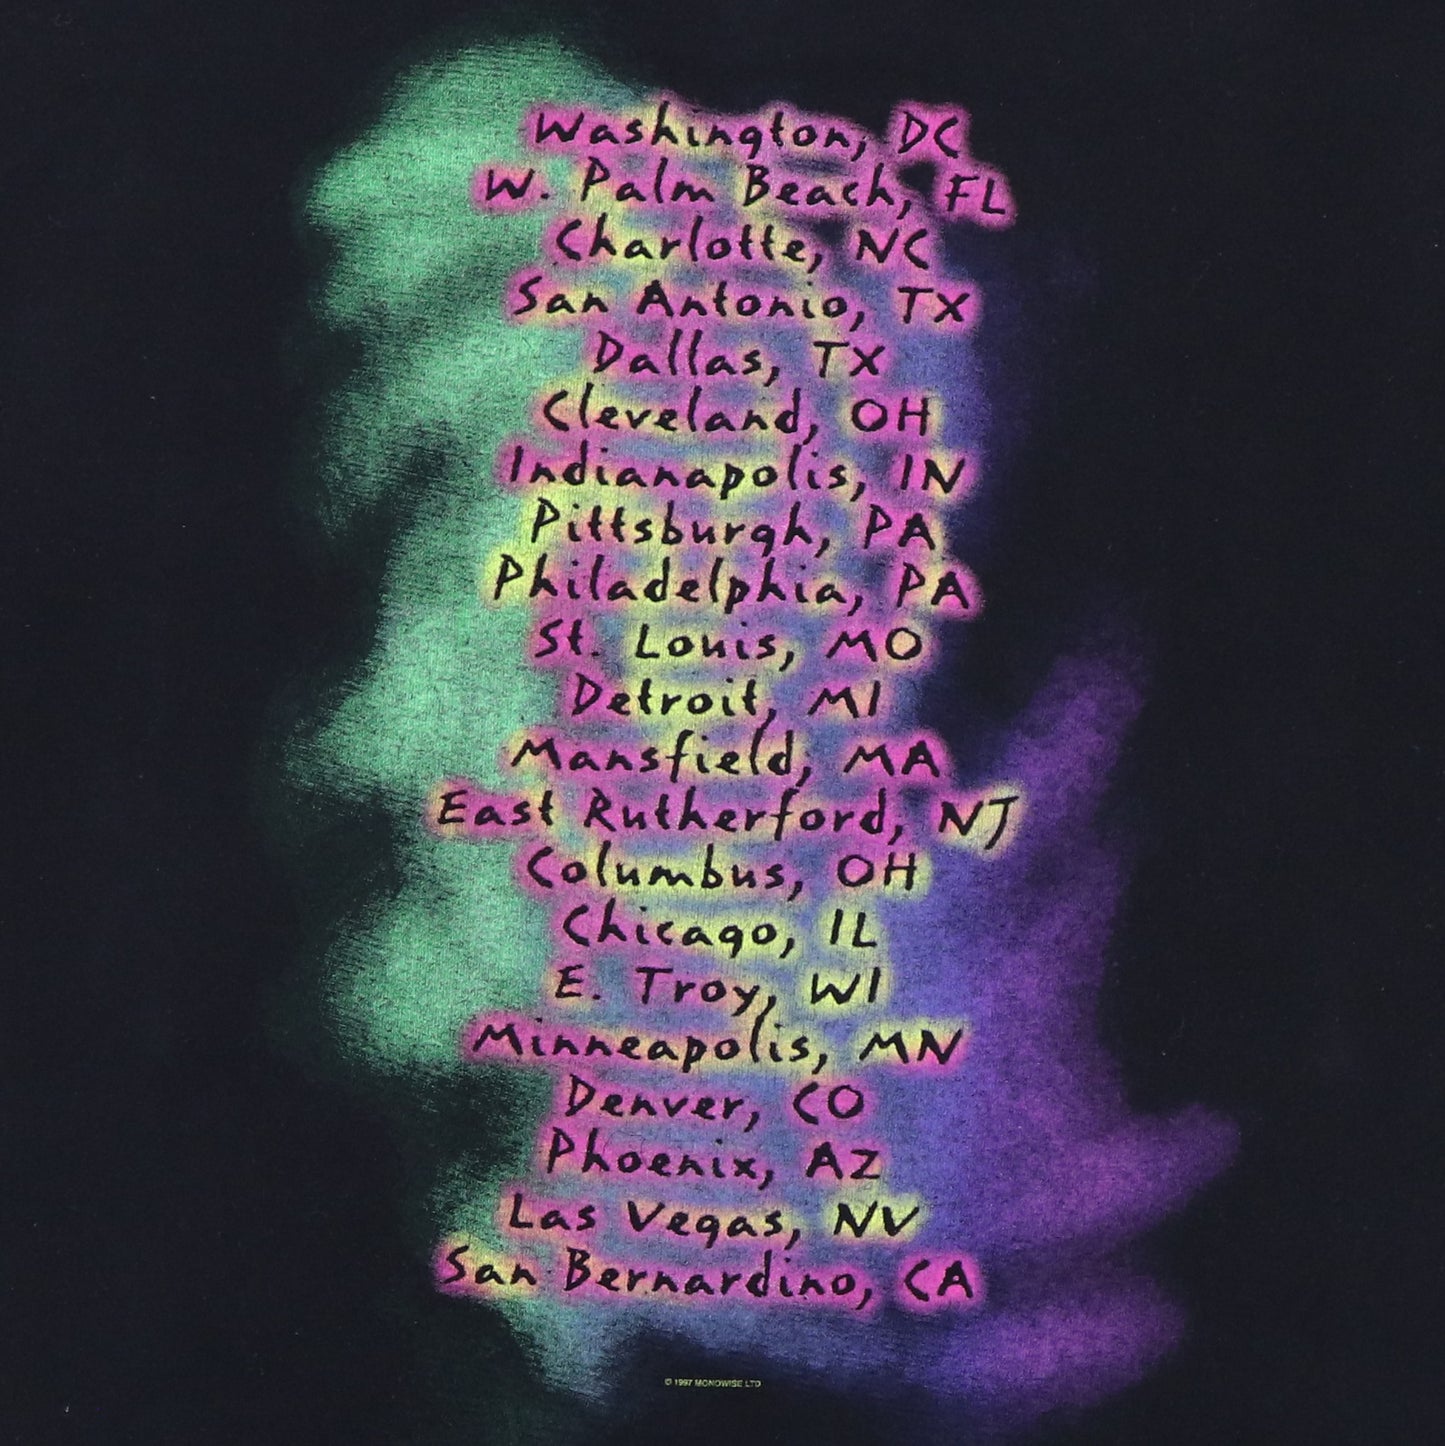 Washington, DC
W. Palm Beach, FL
Charlotte, NC
San Antonio, TX
Dallas, TX
Cleveland, OH
Indianapolis, IN
Pittsburgh, PA
Philadelphia, PA
St. Louis, MO
Detroit, MI
Mansfield, MA
East Rutherford, NJ
Columbus, OH
Chicago, IL
E. Troy, WI
Minneapolis, MN
Denver, CO
Phoenix, AZ
Las Vegas, NV
San Bernardino, CA
© 1997 MONOWISE LTD